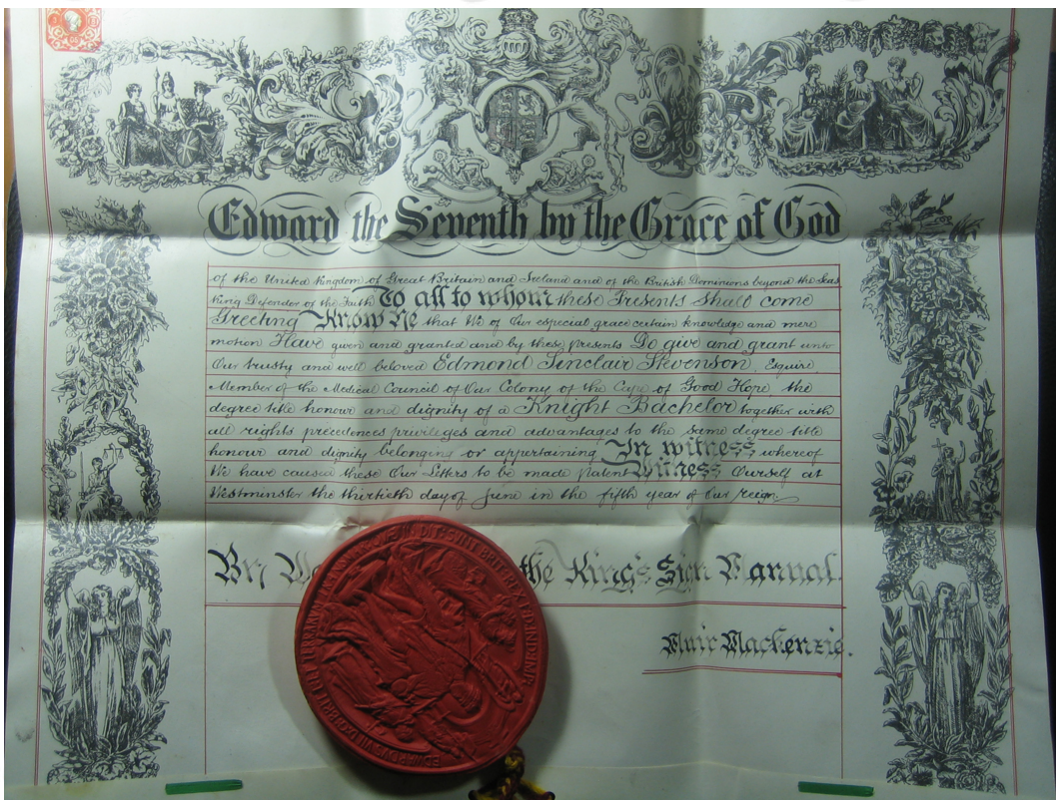 Edward the Seventh by the Grace of God
of the United Kingdom of Great Britain and Ireland and of the British Dominions beyond the Seas
King Defender of the Faith To all to whom these Presents shall come
Greeting Know Ye that We of Our especial grace certain knowledge and mere
motion Have given and granted and by these presents Do give and grant unto
Our trusty and well beloved Edmond Sinclair Stevenson Esquire
Member of the Medical Council of Our Colony of the Cape of Good Hope the
degree title honour and dignity of a Knight Bachelor together with
all rights precedences privileges and advantages to the same degree title
honour and dignity belonging or appertaining In witness whereof
We have caused these Our Letters to be made Patent Witness Ourself at
Westminster the thirtieth day of June in the fifth year of Our reign.
By the King's Sign Manual.
Muir Mackenzie.